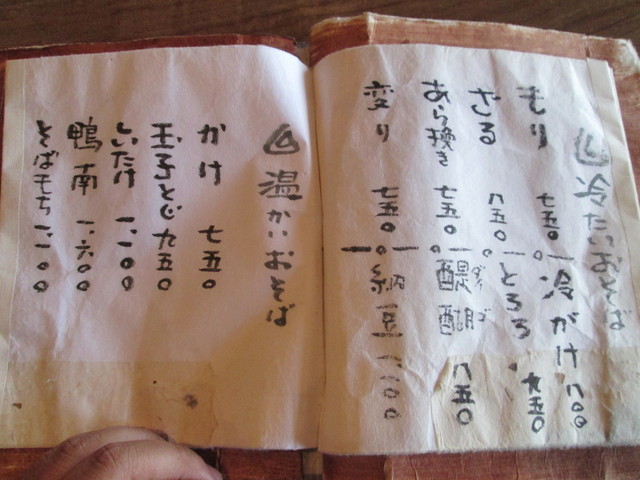 冷たいおそば
もり 七五〇
ざる 八五〇
あら挽き 七五〇
変り 七五〇
冷がけ 八〇〇
とろろ 九五〇
醍醐 八五〇
納豆 一、一〇〇
温かいおそば
かけ 七五〇
玉子とじ 九五〇
しいたけ 一、一〇〇
鴨南 一、六〇〇
そばもち 一、一〇〇